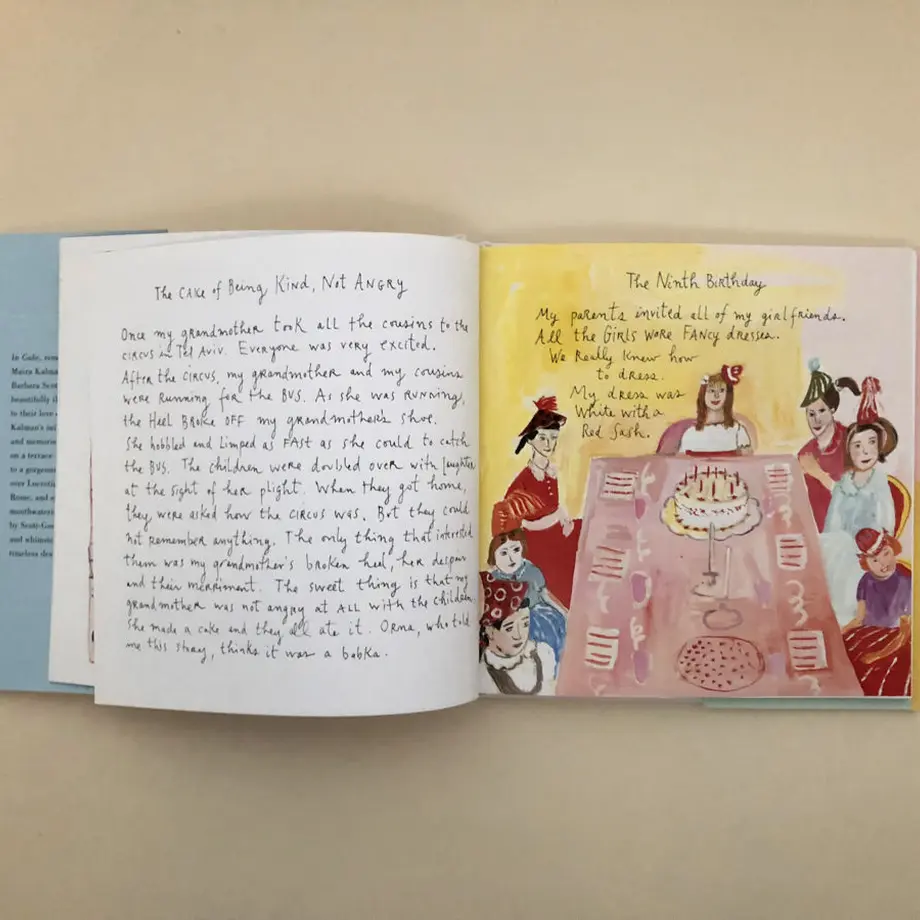 In Cake, ren
Maira Kalman
Barbara Scot
beautifully il
to their love
Kalman's inim
and memories
on a terrace
to a gorgeous
over Lucretia
Rome, and e
mouthwaterin
by Scott-Goo
and whimsic
timeless des
The CAKE of Being KIND, NOT ANGRY
Once my grandmother took all the cousins to the
CIRCUS in Tel Aviv. Everyone was very excited.
After the CIRCUS, my grandmother and my cousins
were Running for the BUS. As she was RUNNING,
the Heel BROKE OFF my grandmother's shoe.
She hobbled and Limped as FAST as she could to catch
the BUS. The children were doubled over with laughter
at the sight of her plight. When they got home,
they were asked how the CIRCUS was. But they could
not remember anything. The only thing that interested
them was my grandmother's broken heel, her despair
and their merriment. The sweet thing is that my
grandmother was not angry at ALL with the children.
She made a cake and they all ate it. Orna, who told
me this story, thinks it was a babka.
The Ninth Birthday
My parents invited all of my girlfriends.
All the GIRLS WORE FANCY dresses.
We Really Knew how
to dress.
My dress was
White with a
Red Sash.